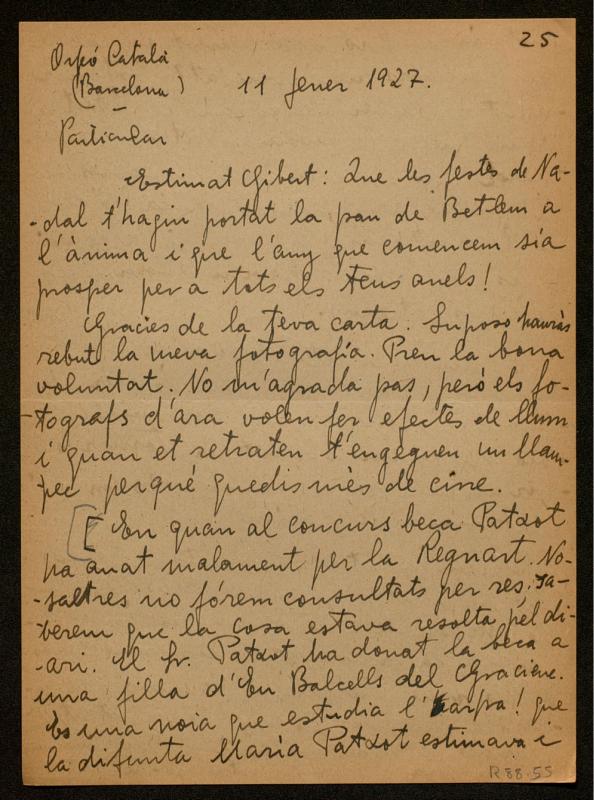 25
Orfeó Català
(Barcelona)
11 jener 1927.
Particular
Estimat Gibert: Que les festes de Na-
-dal t'hagin portat la pau de Betlem a
l'ànima i que l'any que comencem sía
prosper per a tots els teus anels!
Gracies de la teva carta. Suposo hauràs
rebut la meva fotografía. Pren la bona
voluntat. No m'agrada pas, però els fo-
-tografs d'ara volen fer efectes de llum
i quan et retraten t'engeguen un llam-
pec perqué quedis més de cine.
[ En quan al concurs beca Patxot
ha anat malament per la Regnart. No-
-saltres no fórem consultats per res; sa-
-berem que la cosa estava resolta pel di-
-ari. El Sr. Patxot ha donat la beca a
una filla d'En Balcells del Graciene.
Es una noia que estudia l'arpa! que
la difunta María Patxot estimava i
R 88.55